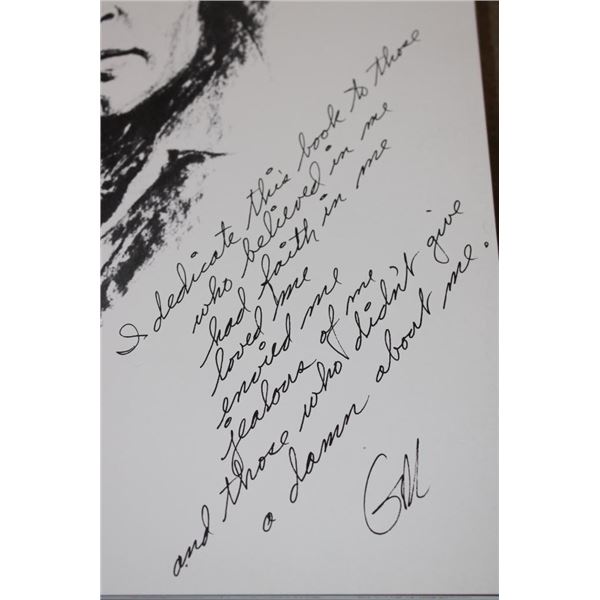 I dedicate this book to those
who believed in me
had faith in me
loved me
envied me
jealous of me
and those who didn't give
a damn about me.